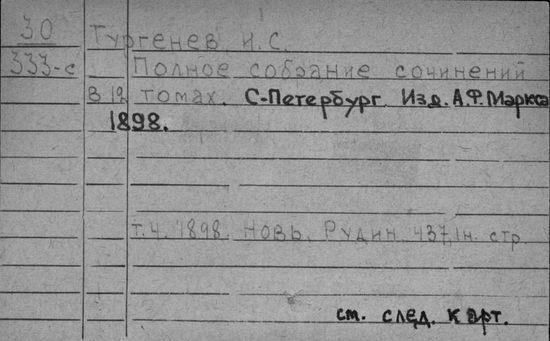 30
Тургенев И.С.
333-с
Полное собрание сочинений
в 12 томах. С-Петербург. Изд. А.Ф. Маркса
1898.
т.4. 1898. Новь. Рудин. 437, 1н. стр.
см. след. карт.